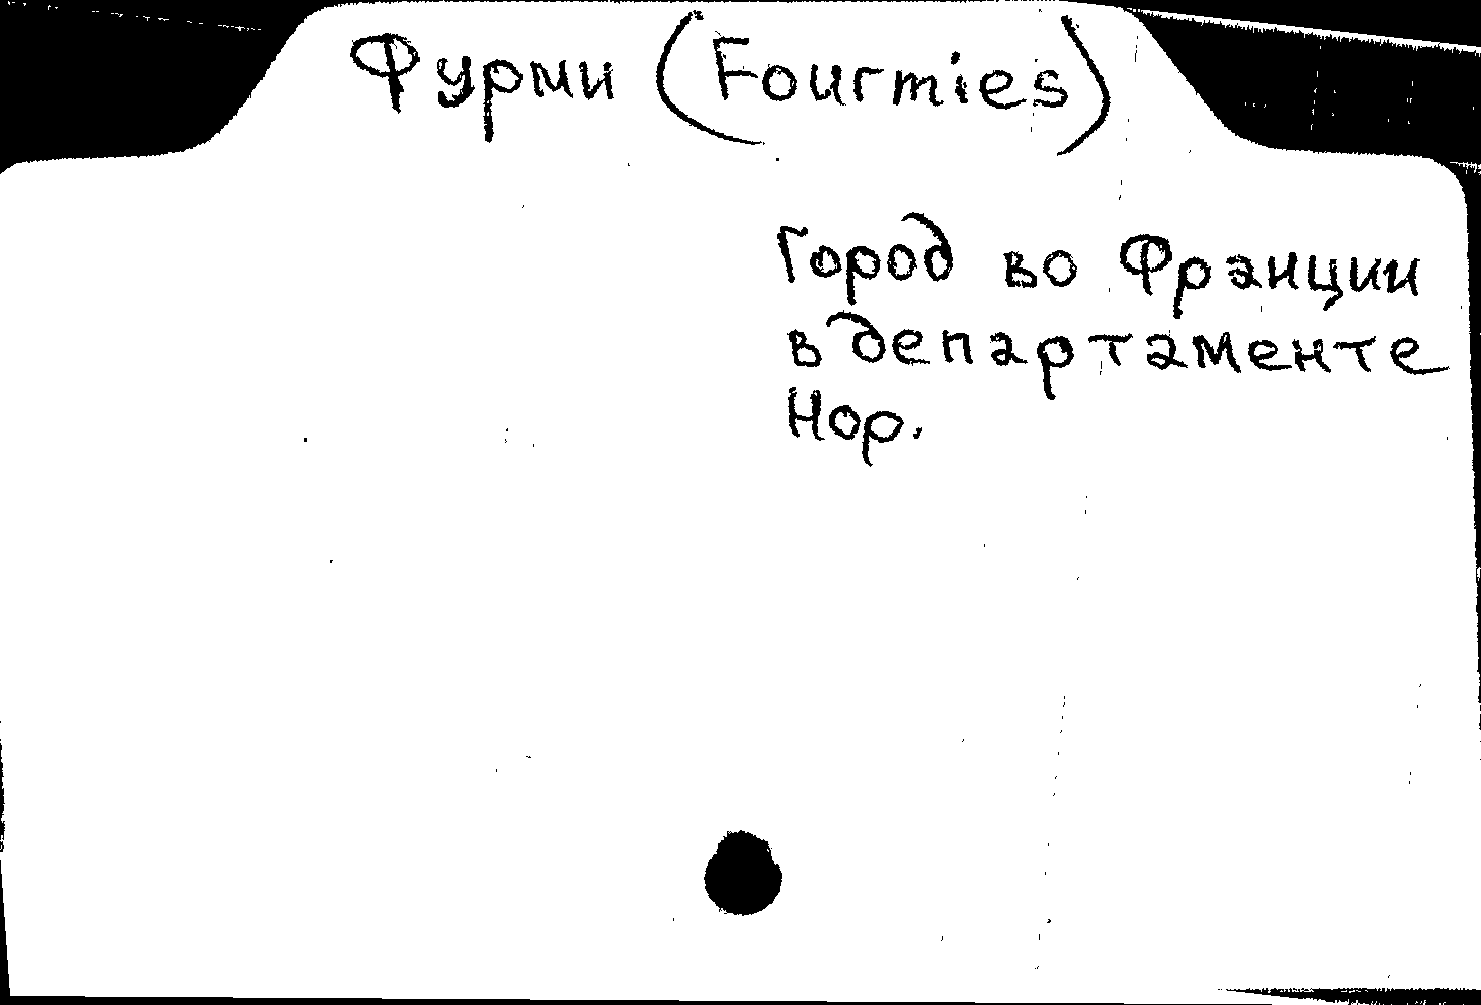 Фурми (Fourmies)
Город во Франции
в департаменте
Нор.